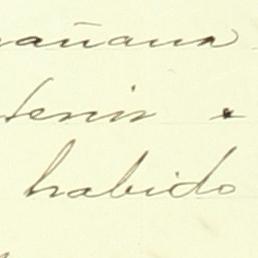 mañana
tenis
habido